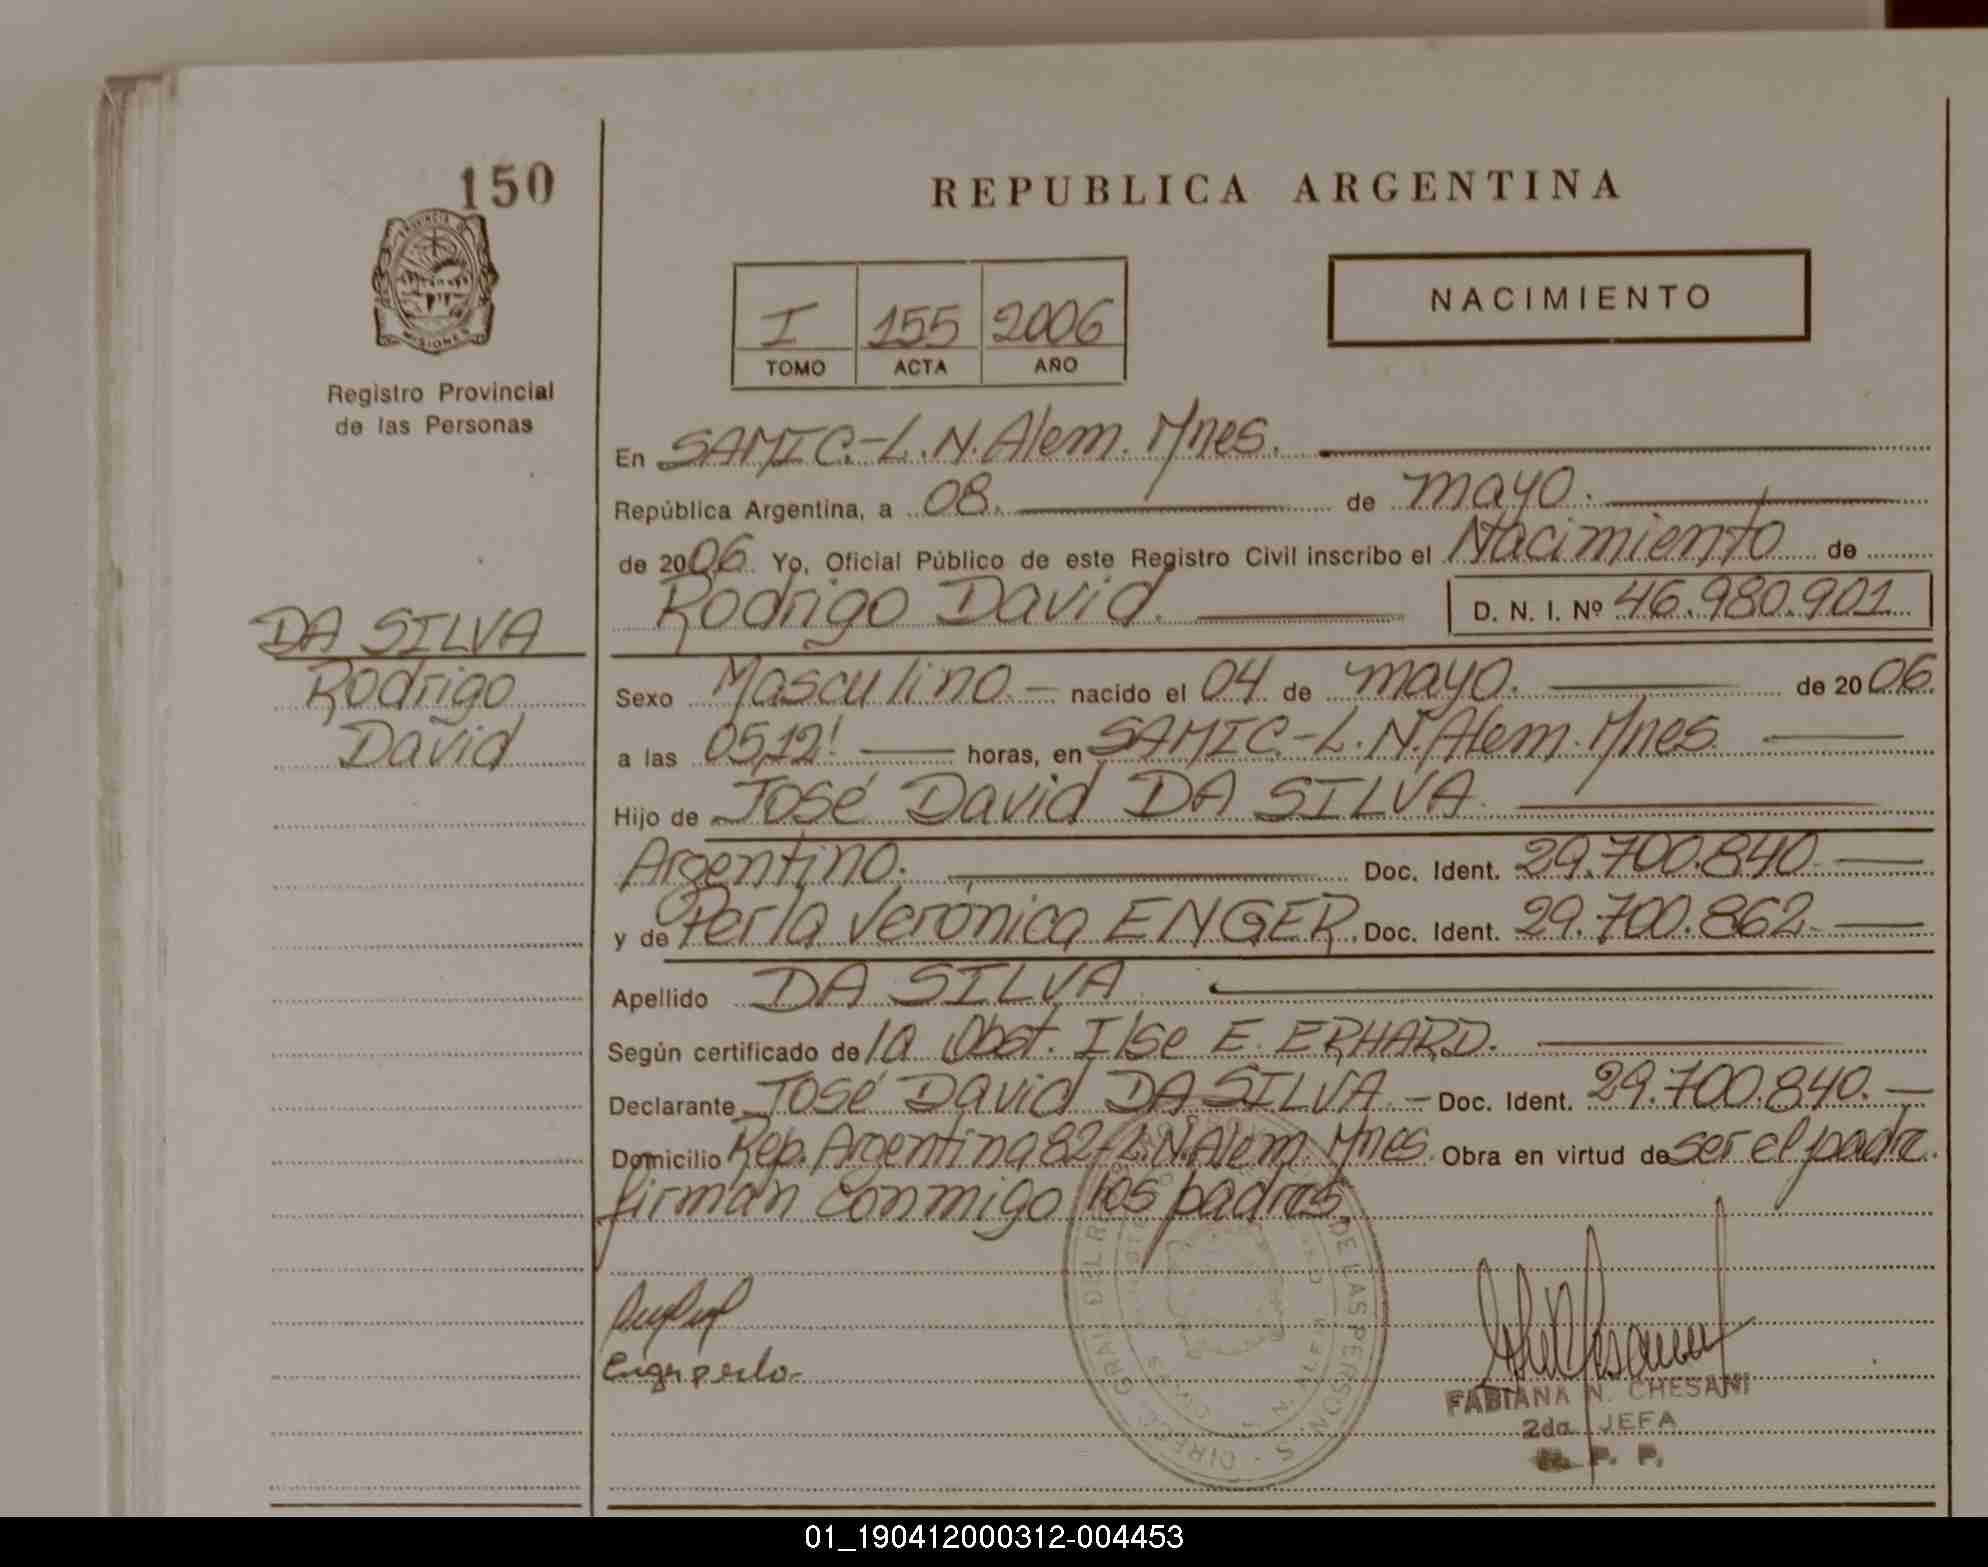 150
PROVINCIA
MISIONES
Registro Provincial
de las Personas
DA SILVA
Rodrigo
David
REPUBLICA ARGENTINA
I 155 2006
TOMO ACTA AÑO
NACIMIENTO
En SAMIC.-L.N.Alem.Mnes.
República Argentina, a 08. de mayo.
de 2006. Yo, Oficial Público de este Registro Civil inscribo el Nacimiento de
Rodrigo David. D. N. I. Nº 46.980.901
Sexo Masculino.- nacido el 04 de mayo. de 2006.
a las 05,12! horas, en SAMIC.-L.N.Alem.Mnes.
Hijo de José David DA SILVA.
Argentino. Doc. Ident. 29.700.840
y de Perla Verónica ENGER. Doc. Ident. 29.700.862
Apellido DA SILVA
Según certificado de la Obst. Ilse E. ERHARD.
Declarante José David DA SILVA.- Doc. Ident. 29.700.840.-
Domicilio Rep. Argentina 82-L.N.Alem. Mnes. Obra en virtud de ser el padre.
firman conmigo los padres,
DE LAS PERSONAS
FABIANA N. CHESANI
2da. JEFA
R. P. P.
01_190412000312-004453